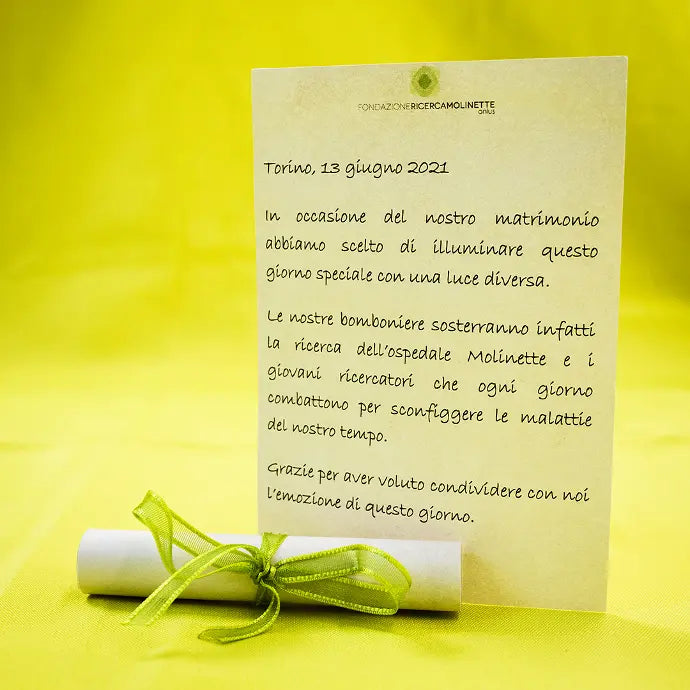 FONDAZIONERICERCAMOLINETTE
onlus
Torino, 13 giugno 2021
In occasione del nostro matrimonio
abbiamo scelto di illuminare questo
giorno speciale con una luce diversa.
Le nostre bomboniere sosterranno infatti
la ricerca dell'ospedale Molinette e i
giovani ricercatori che ogni giorno
combattono per sconfiggere le malattie
del nostro tempo.
Grazie per aver voluto condividere con noi
l'emozione di questo giorno.